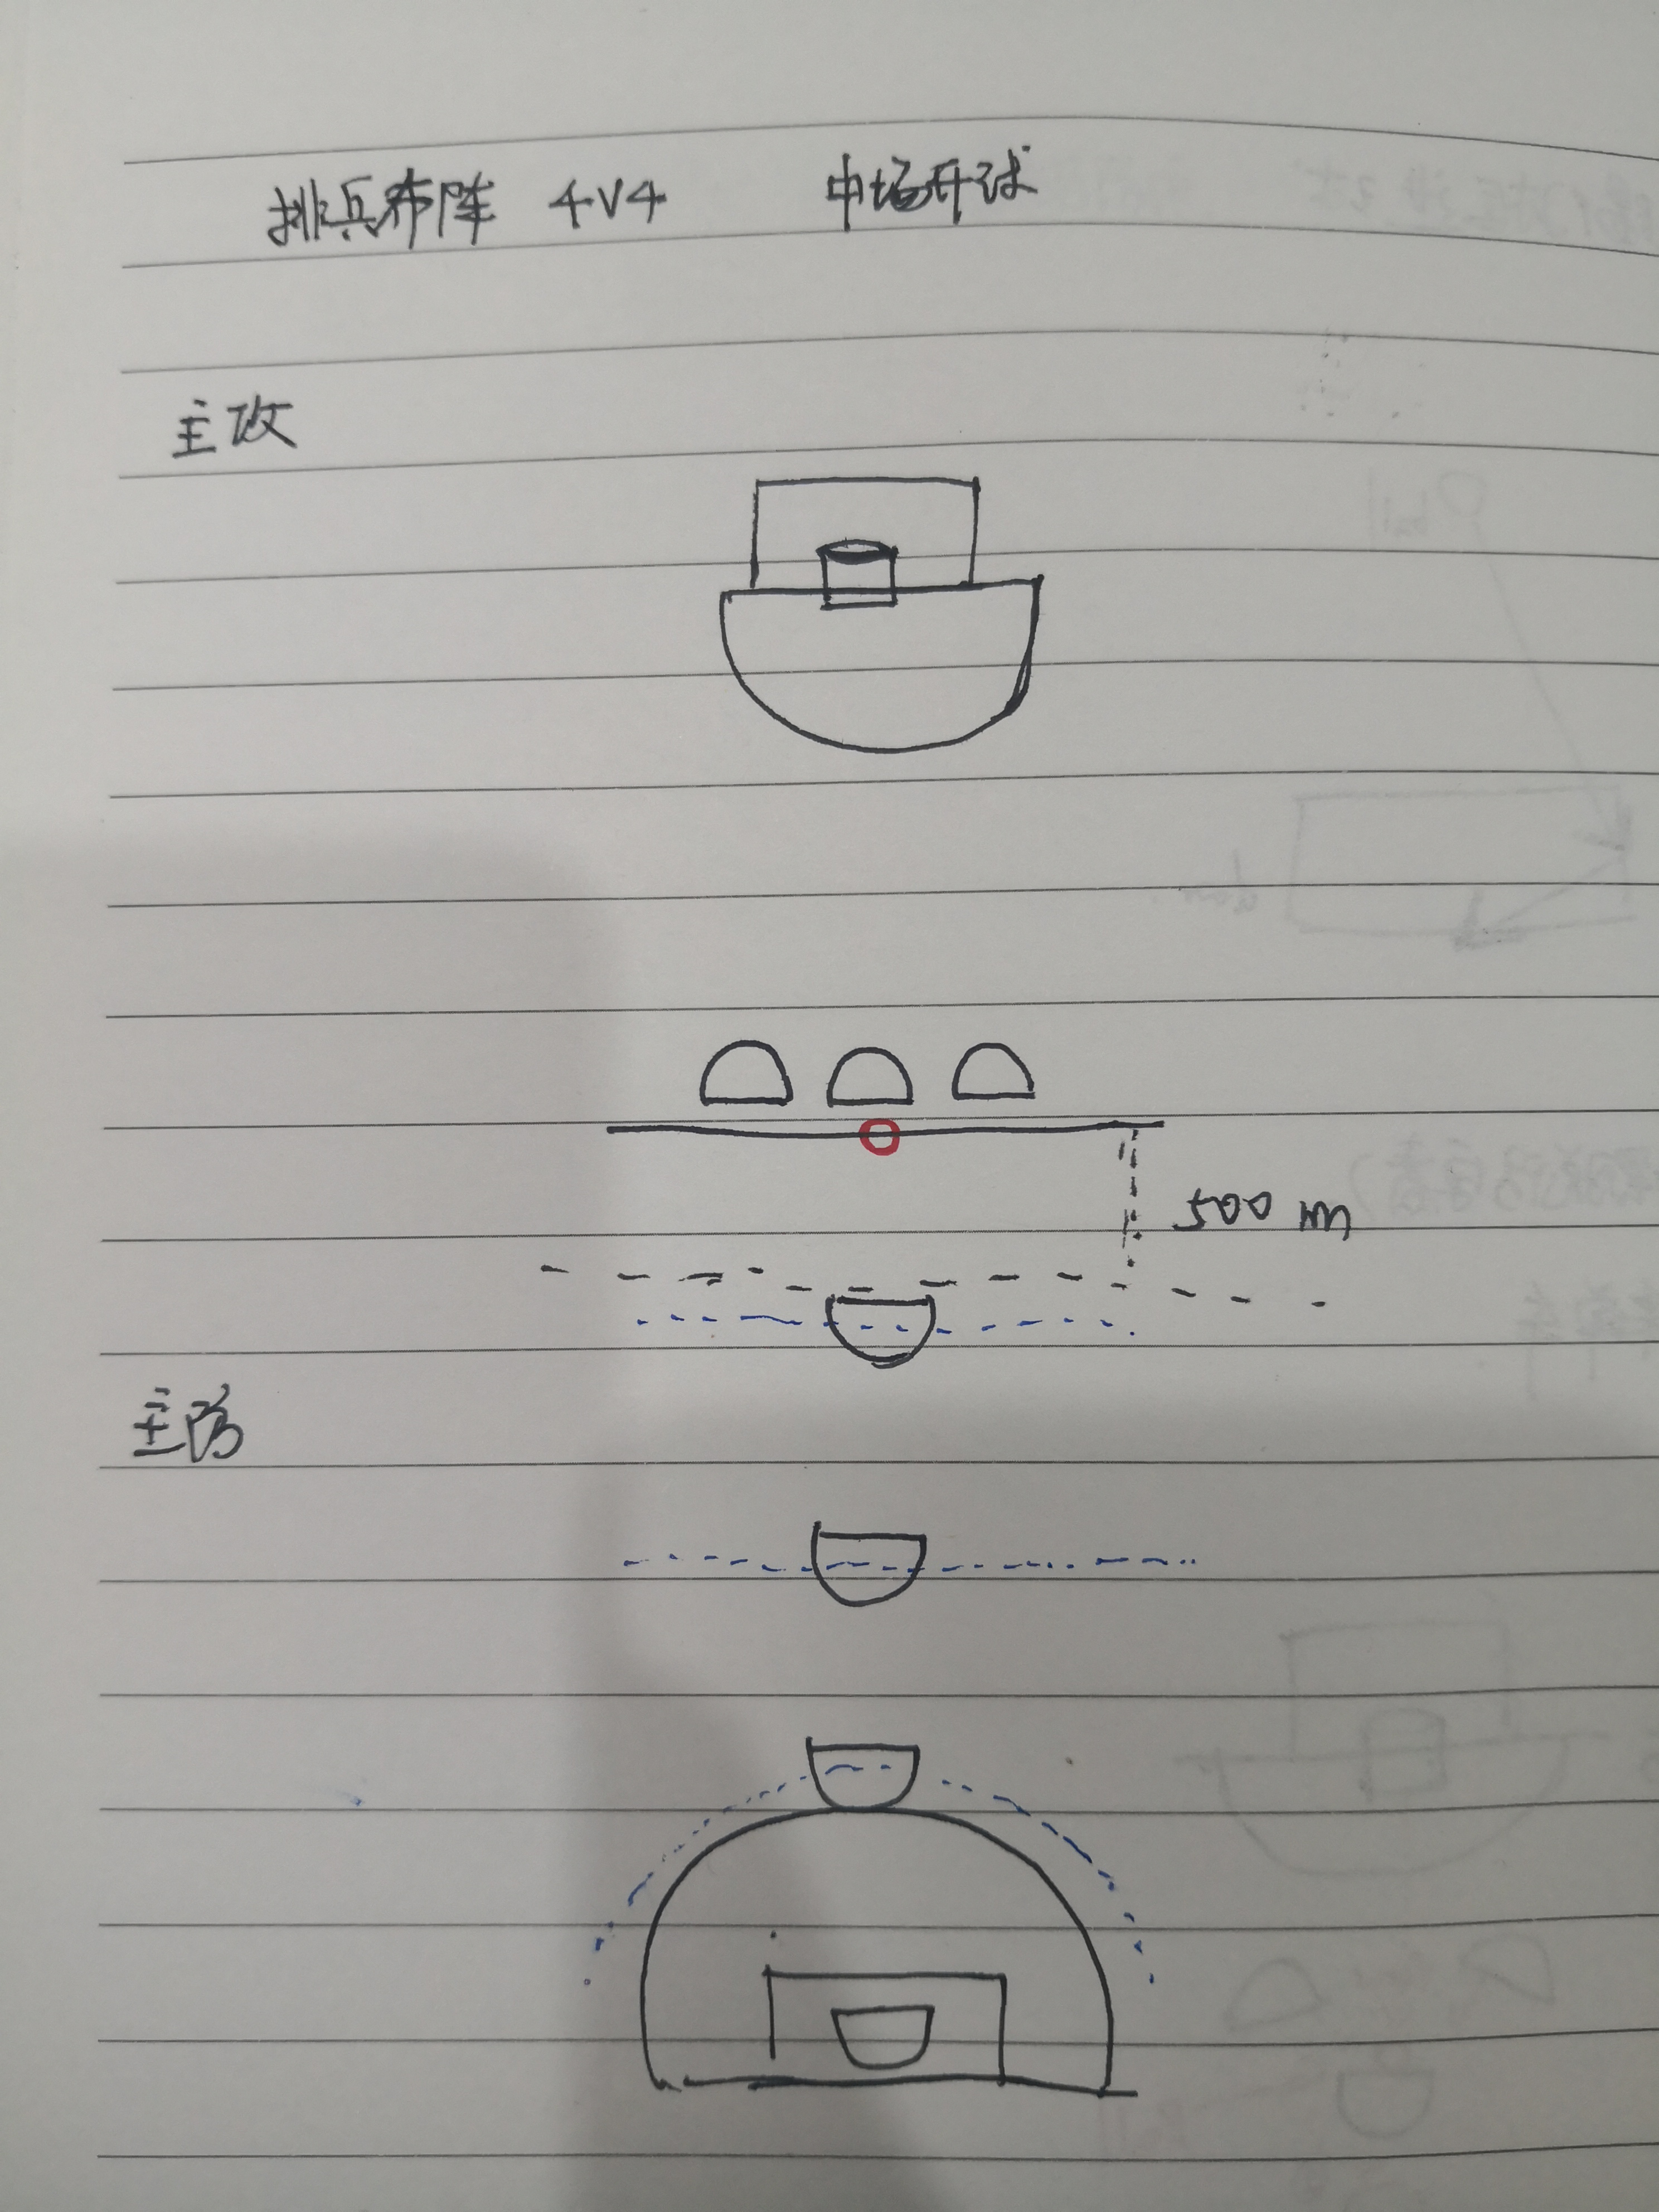 排兵布阵 4V4 中场开球
主攻
500 m
主防